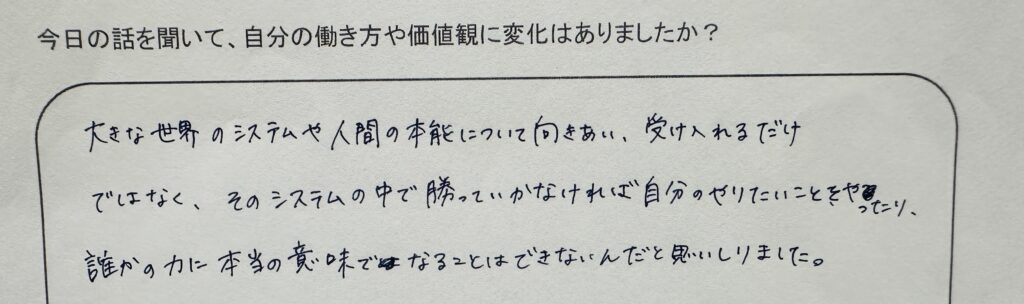 今日の話を聞いて、自分の働き方や価値観に変化はありましたか?
大きな世界のシステムや人間の本能について向きあい、受け入れるだけ
ではなく、そのシステムの中で勝っていかなければ自分のやりたいことをやったり、
誰かの力に本当の意味でなることはできないんだと思いしりました。